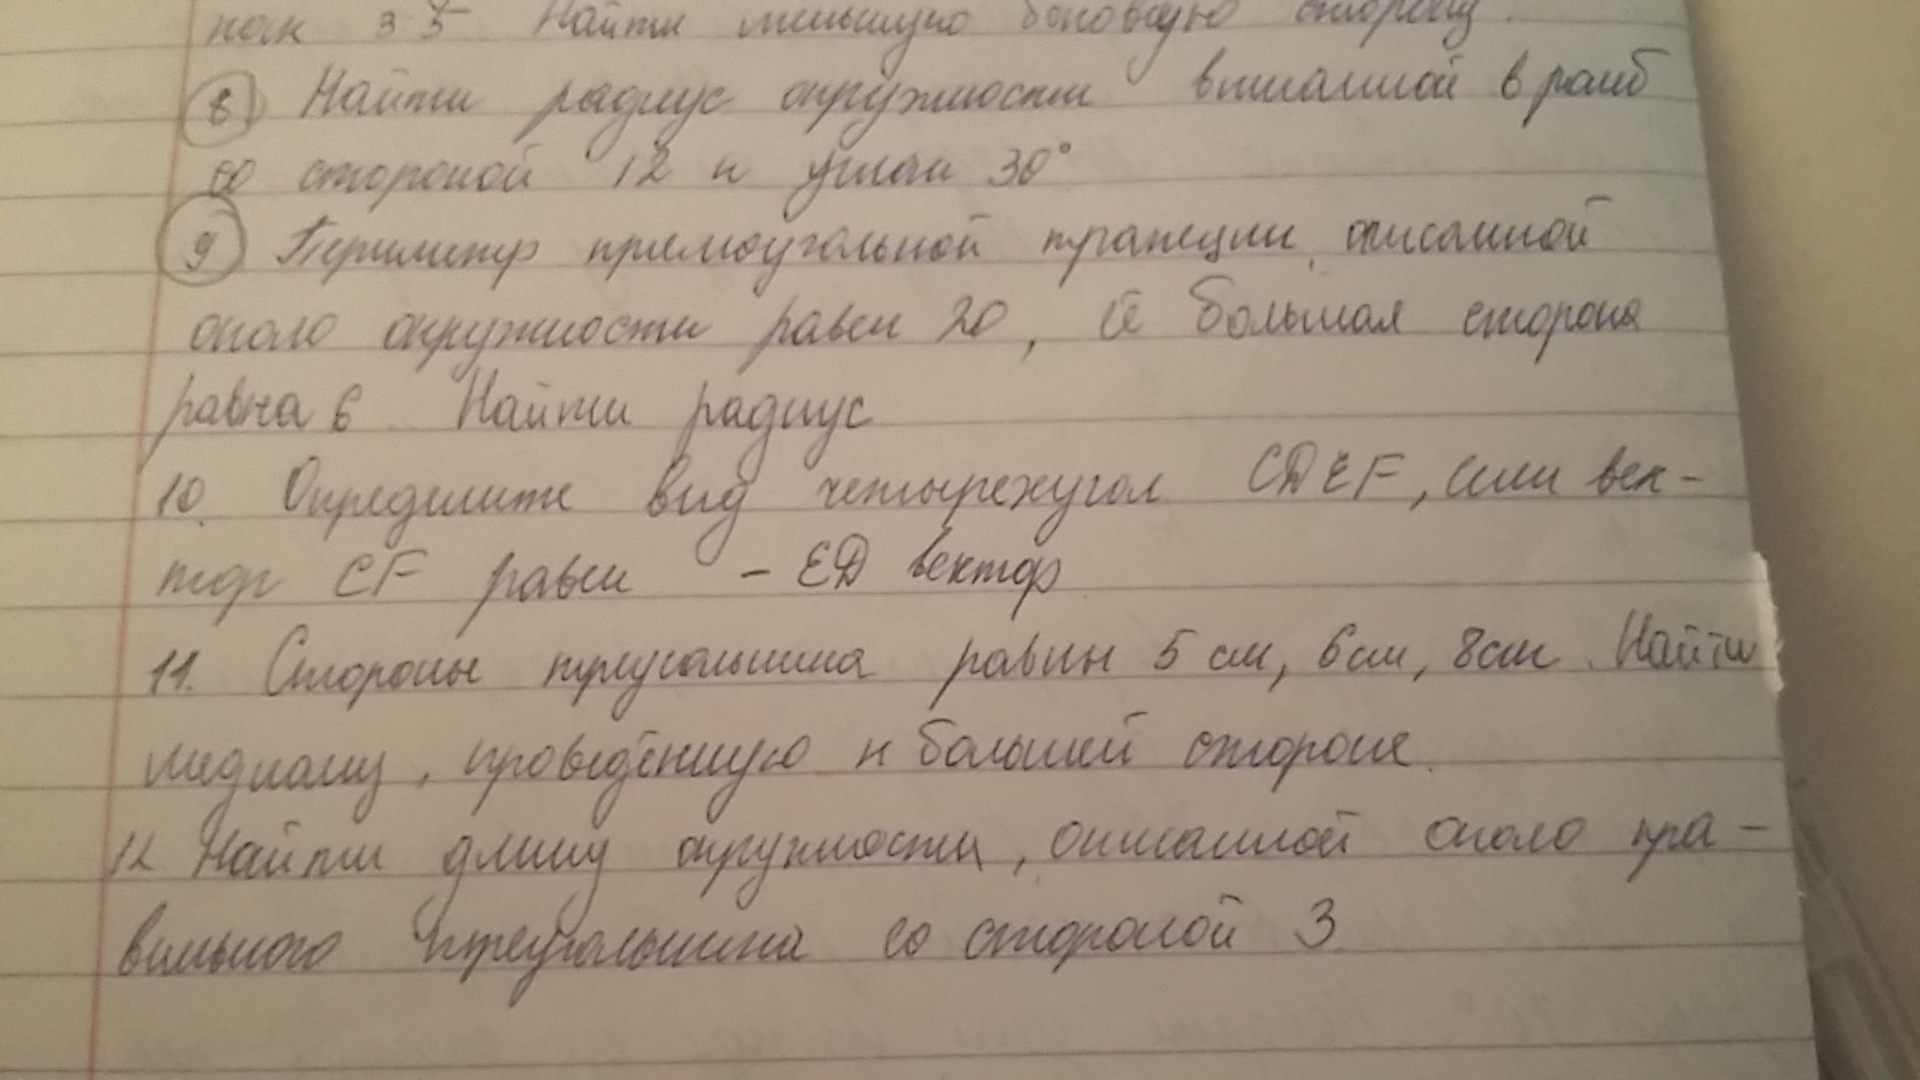 3 5 Найти меньшую боковую сторону.
8 Найти радиус окружности вписанной в ромб
со стороной 12 и углом 30°
9 Периметр прямоугольной трапеции, описанной
около окружности равен 20, её большая сторона
равна 6 Найти радиус
10. Определите вид четырехугол CDEF, если век-
тор CF равен - ED вектор
11. Стороны треугольника равны 5 см, 6 см, 8 см. Найти
медиану, проведённую к большей стороне.
12 Найти длину окружности, описанной около пра-
вильного треугольника со стороной 3